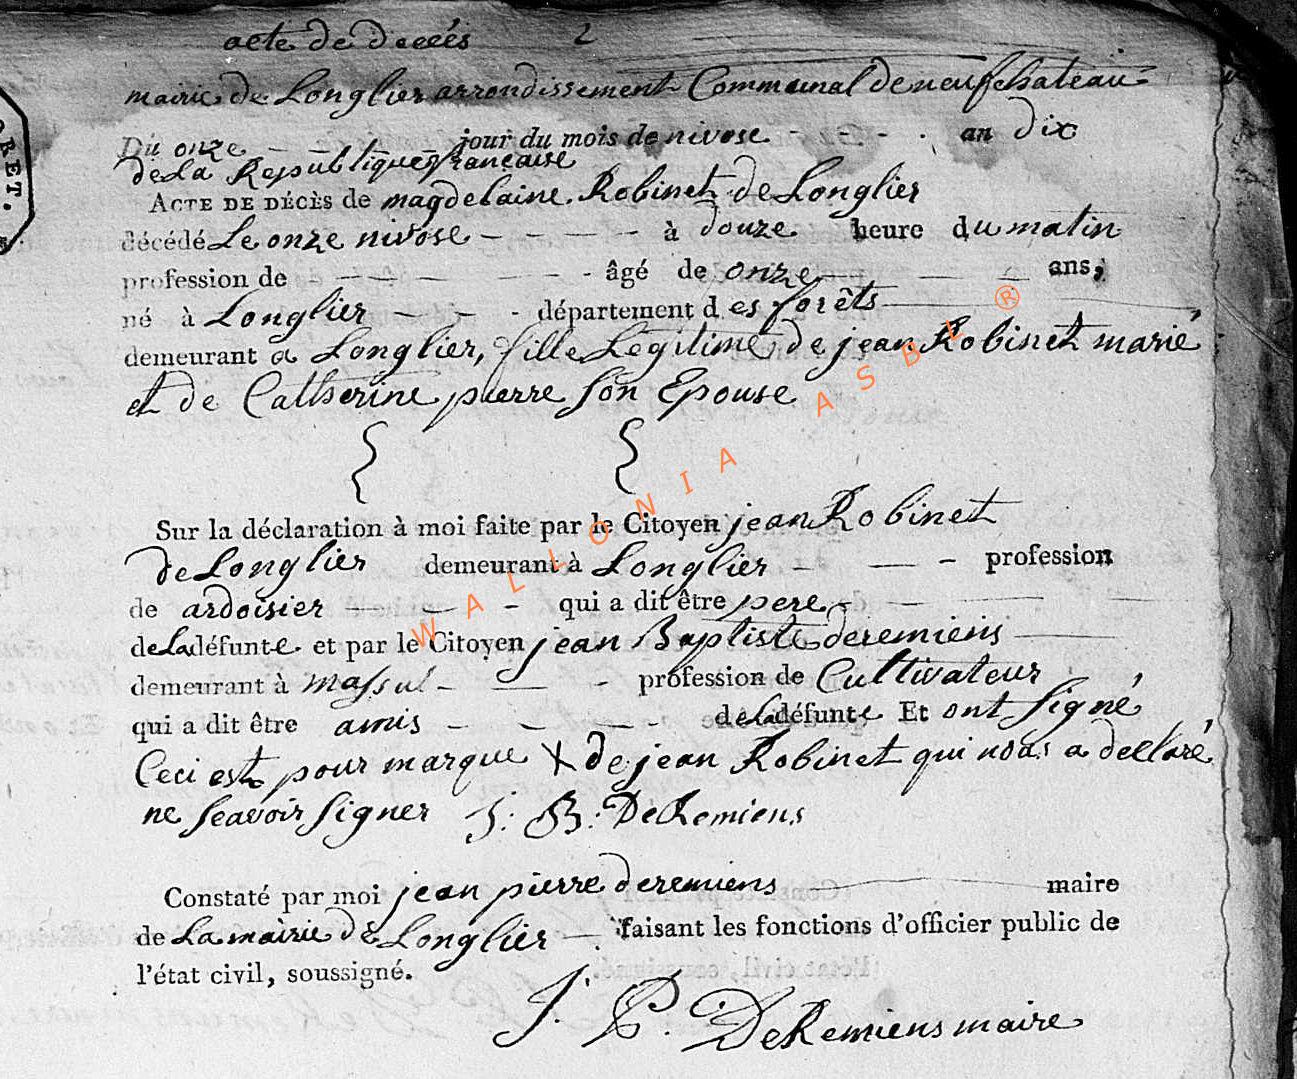 acte de decés 2
mairie de Longlier arrondissement Communal de neufchateau
Du onze - - - jour du mois de nivose - - - . an dix
de La Republique française
ACTE DE DÉCÈS de magdelaine Robinet de Longlier
décédé Le onze nivose - - - - à douze heure du matin
profession de - - - - âgé de onze ans,
né à Longlier - - - département des forêts
demeurant a Longlier, fille Legitime de jean Robinet marié
et de Catherine pierre son Epouse
Sur la déclaration à moi faite par le Citoyen jean Robinet
de Longlier demeurant à Longlier - - - profession
de ardoisier - - - qui a dit être pere
de La défunte et par le Citoyen jean Baptiste deremiens
demeurant à massul - - - profession de Cultivateur
qui a dit être amis - - - - de La défunte Et ont signé
Ceci est pour marque X de jean Robinet qui nous a declaré
ne scavoir signer J: B: DeRemiens
Constaté par moi jean pierre deremiens maire
de La mairie de Longlier - . faisant les fonctions d'officier public de
l'état civil, soussigné.
J. P. DeRemiens maire
RET.
WALLONIA ASBL ®